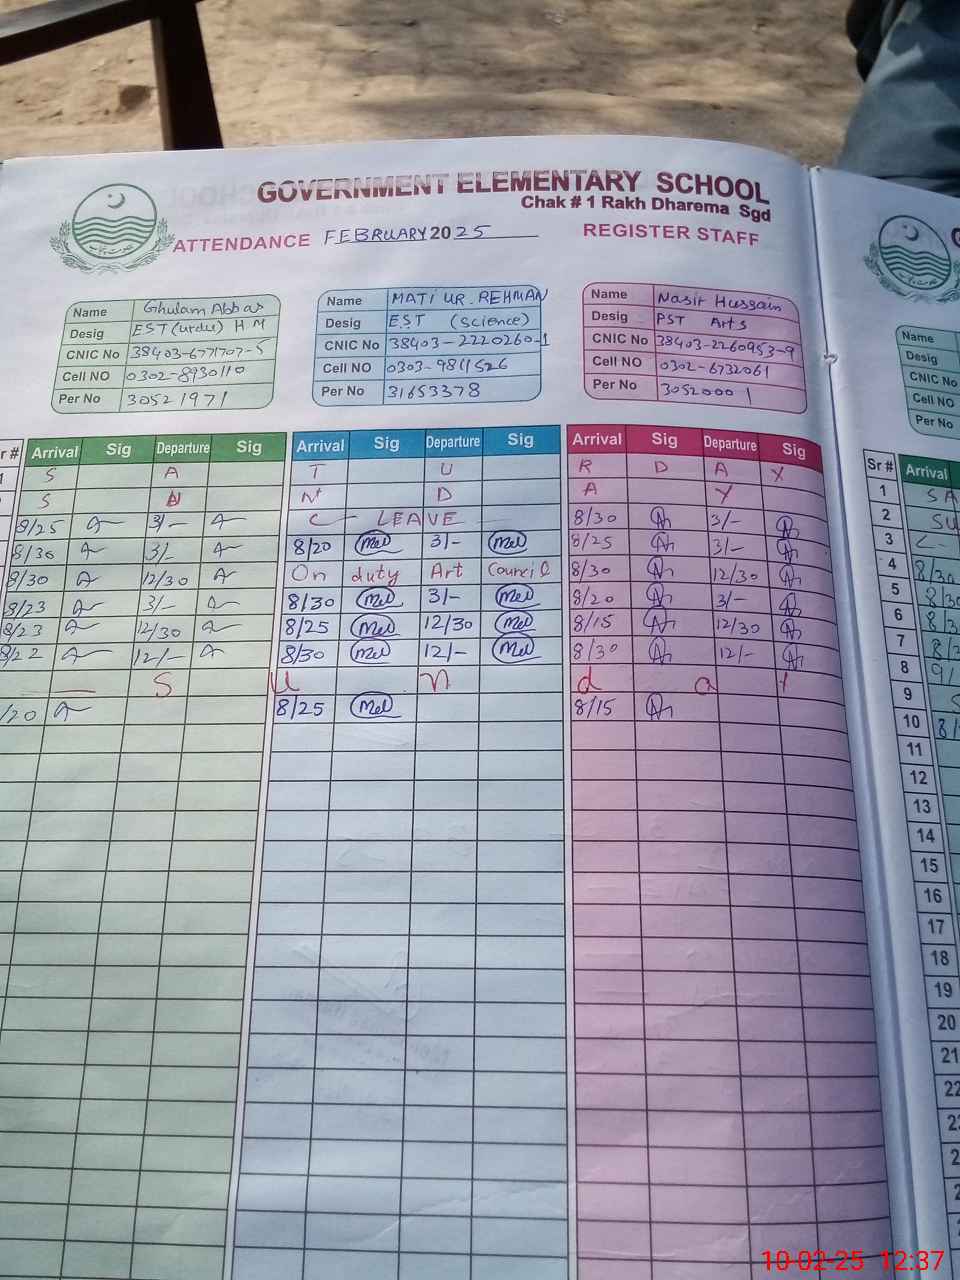 GOVERNMENT ELEMENTARY SCHOOL
Chak # 1 Rakh Dharema Sgd
ATTENDANCE FEBRUARY 2025 REGISTER STAFF
Name Ghulam Abbas
Desig EST (urdu) H M
CNIC No 38403-6771707-5
Cell NO 0302-8930110
Per No 30521971
Name MATI UR. REHMAN
Desig E.S.T (Science)
CNIC No 38403-2220260-1
Cell NO 0303-9811526
Per No 31653378
Name Nasir Hussain
Desig PST Arts
CNIC No 38403-2260953-9
Cell NO 0302-6732061
Per No 30520001
Name
Desig
CNIC No
Cell NO
Per No
r # Arrival Sig Departure Sig Arrival Sig Departure Sig Arrival Sig Departure Sig Sr # Arrival
1 S A T U R D A Y 1 SA
S N D A Y 2 SU
8/25 3/- C LEAVE 8/30 3/- 3 C-
8/30 3/- 8/20 Mel 3/- Mel 8/25 3/- 4 8/30
8/30 12/30 On duty Art Council 8/30 12/30 5
8/23 3/- 8/30 Mel 3/- Mel 8/20 3/- 6
8/23 12/30 8/25 Mel 12/30 Mel 8/15 12/30 7
8/22 12/- 8/30 Mel 12/- Mel 8/30 12/- 8 9/
S u n d a y 9 S
/20 8/25 Mel 8/15 10 8/
11
12
13
14
15
16
17
18
19
20
21
22
2
2
2
2
10-02-25 12:37